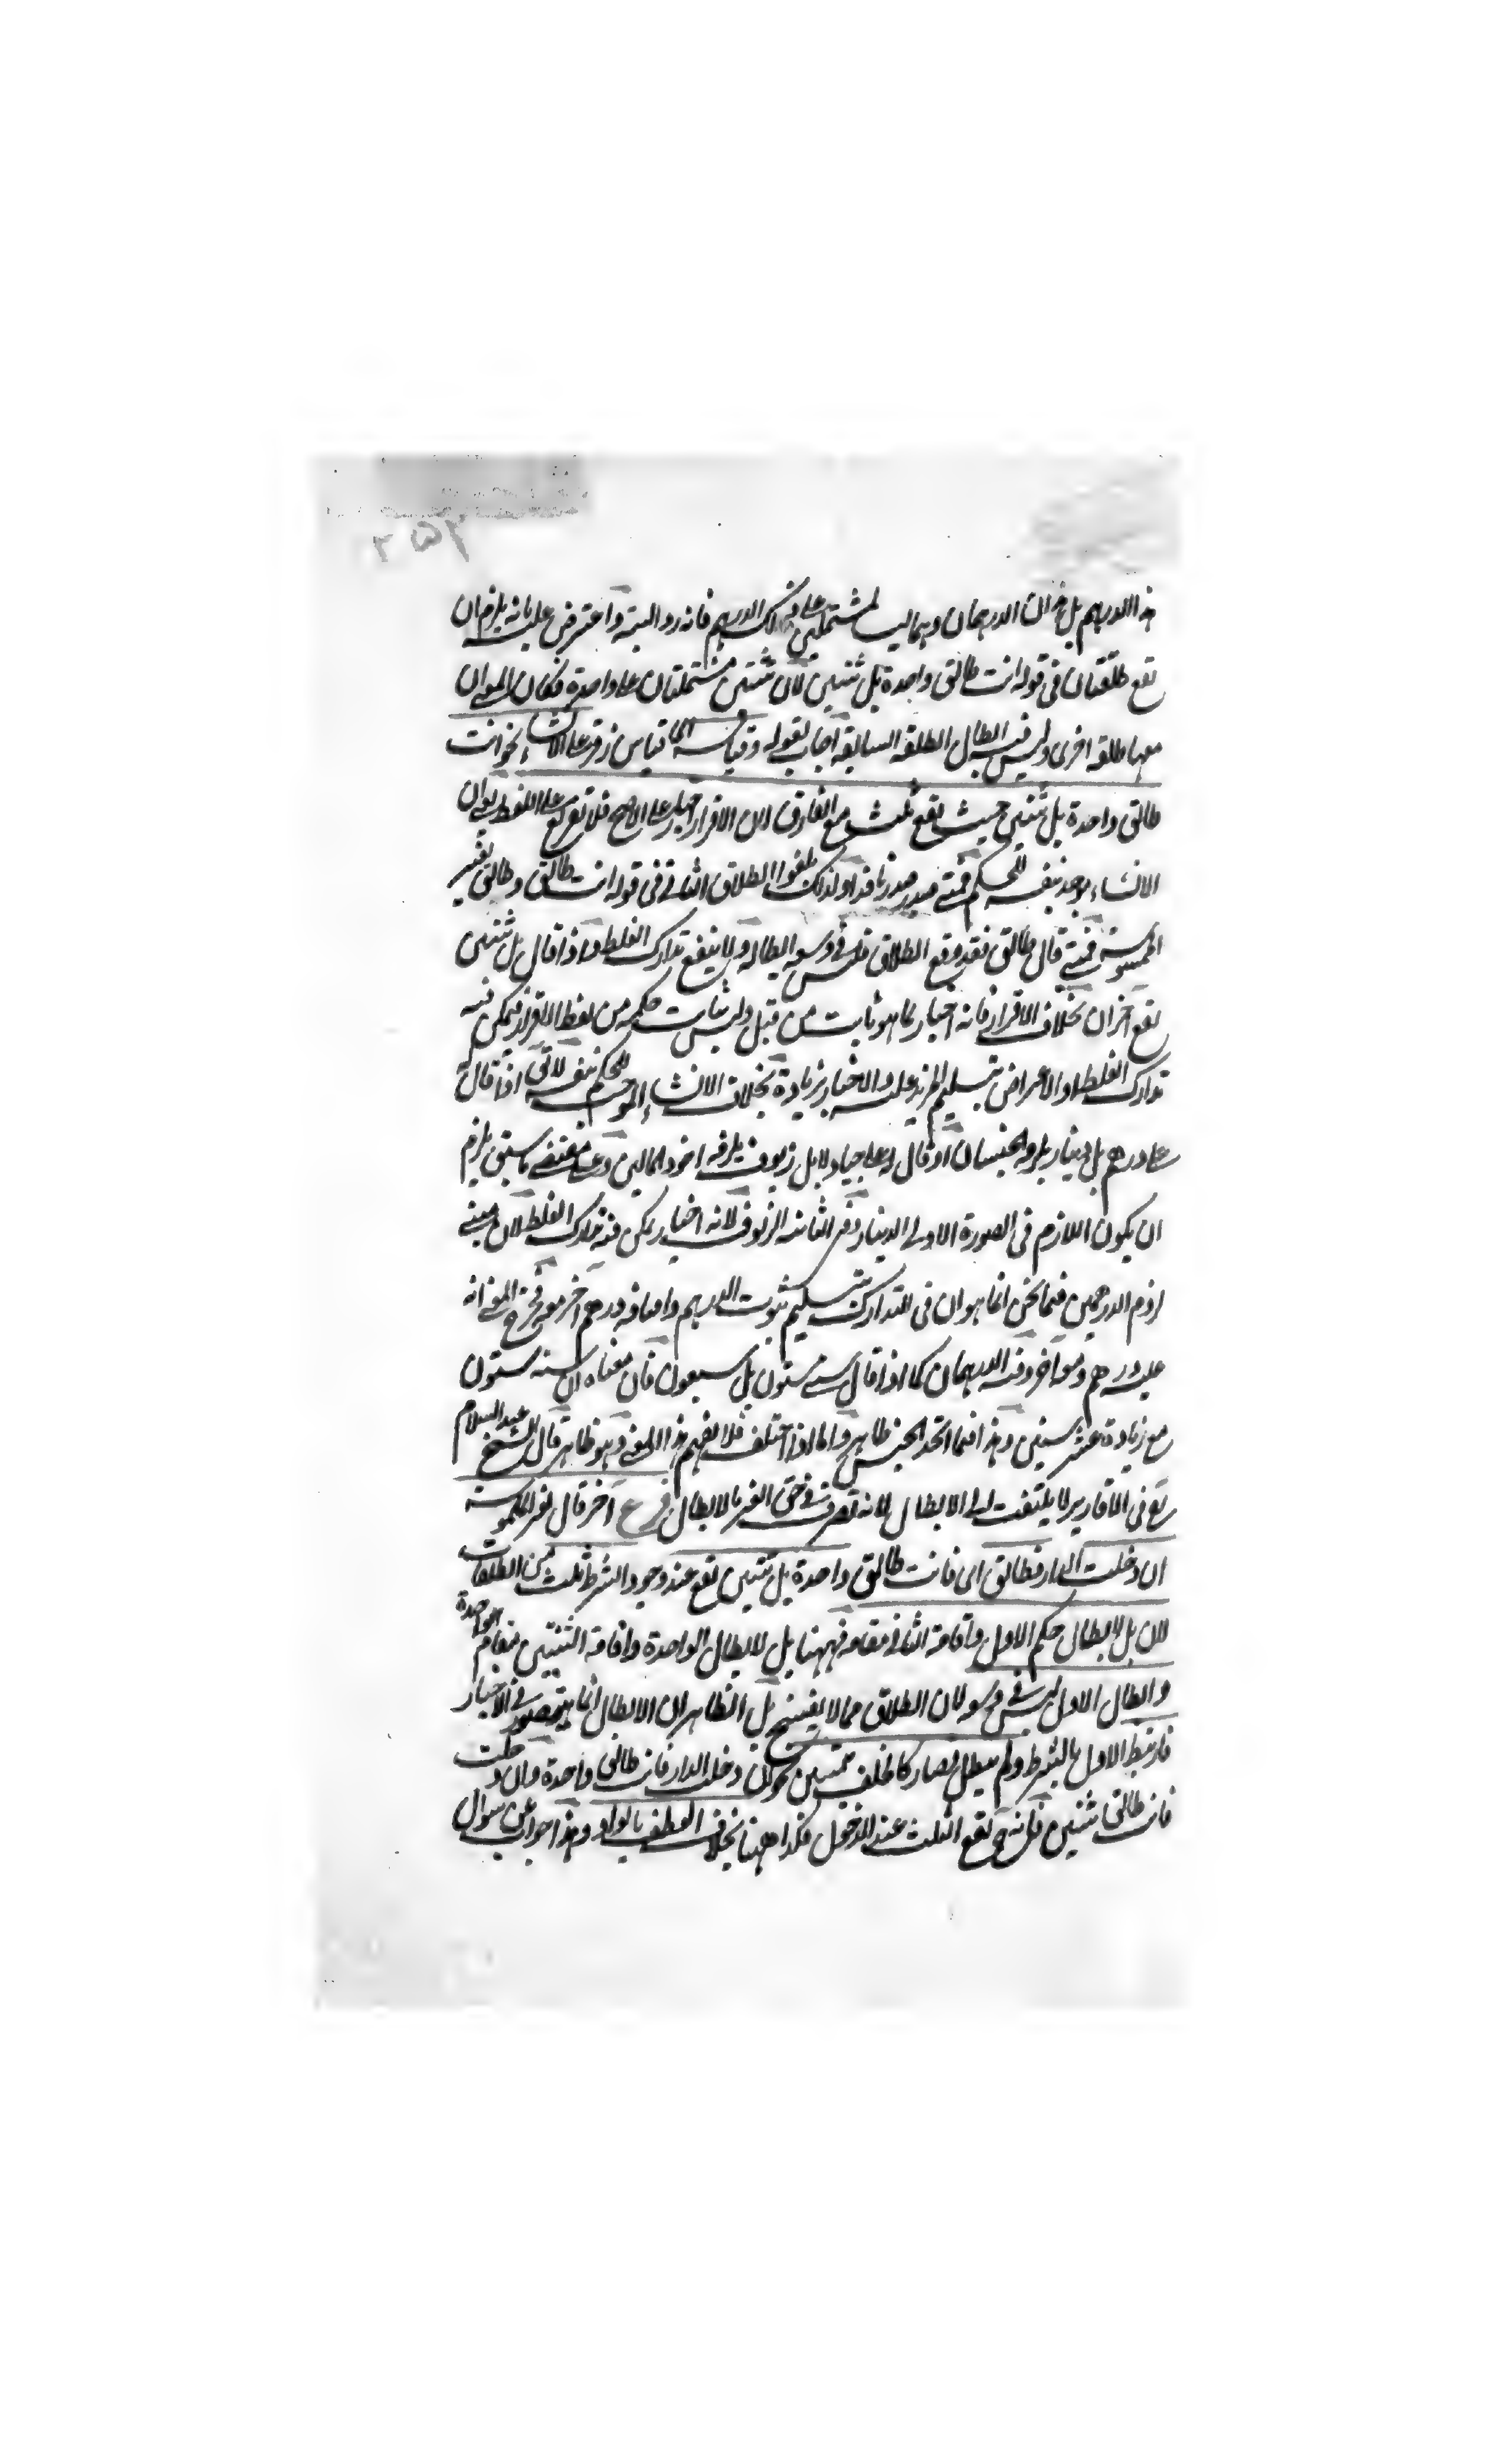 هذا الدرهم بل هذان الدرهمان وهما ليسا مشتملين على ذلك الدرهم فانه رد البتة واعترض عليه بانه يلزم ان
تقع طلقتان فى قوله انت طالق واحدة بل ثنتين لان ثنتين مشتملتان على واحدة فكان المعنى ان
معها طلقة اخرى وليس فيه ابطال الطلقة السابقة اجاب بقوله وقياسه اى قياس زفر على الانشاء نحو انت
طالق واحدة بل ثنتين حيث يقع ثلث مع الفارق لان الاقرار اخبار على الاصح فلا تعرى على اللفظ بل ان
الانشاء يوجد بنفسه للحكم فمتى صدر صدر نافذا ولذلك يلغوا الطلاق الثانى فى قوله انت طالق وطالق لغير
الممسوسة فمتى قال طالق فقد وقع الطلاق فليس فى وسعه ابطاله ولا ينفع تدارك الغلط واذا قال بل ثنتين
تقع اخران بخلاف الاقرار فانه اخبار بما هو ثابت من قبل وليس ثبات حكمه من لفظ الاقرار فيمكن فيه
تدارك الغلط او الاعراض بتسليم المزيد عليه والاخبار بزيادة بخلاف الانشاء الموجب للحكم بنفسه لا تى اذا قال
على درهم بل دينار يلزم الجنسان او قال له على جياد لا بل زيوف يلزمه اجود المالين وعلى مقتضى ما سبق يلزم
ان يكون اللازم فى الصورة الاولى الدينار وفى الثانية الزيوف لانه اخبار يمكن فيه تدارك الغلط لان مبنى
لزوم الدرهمين فيما نحن انما هو ان فى التدارك تسليم ثبوت الدرهم واضافة درهم آخر معه فخرج المعنى انه
عليه درهم ومع آخر وفيه الدرهمان كما اذا قال سنى ستون بل سبعون فان معناه ان سنه ستون
مع زيادة عشر سنين وهذا فيما اتحد الجنس ظاهر واما اذا اختلف فلا يفهم هذا المعنى وهو ظاهر قال الشيخ عبد السلام
تع فى الاقارير لا يلتفت الى الابطال لانه تصرف فى حق الغير بالابطال فرع آخر قال لغير الملموسة
ان دخلت الدار فطالق اى فانت طالق واحدة بل ثنتين تقع عند وجود الشرط ثلث من الطلقات
لان بل لابطال حكم الاول واقامة الثانى مقامه فههنا بل لابطال الواحدة واقامة الثنتين مقام الواحدة
وابطال الاول ليس فى وسعه لان الطلاق مما لا يفسخ بل الظاهر ان الابطال انما يتصور فى الاخبار
فارتبط الاول بالشرط ولم يبطل فصار كالحلف بيمينين نحو ان دخلت الدار فانت طالق واحدة وان دخلت
فانت طالق ثنتين فانه ح تقع الثلث عند الدخول فكذا ههنا بخلاف العطف بالواو وهذا جواب عن سوال